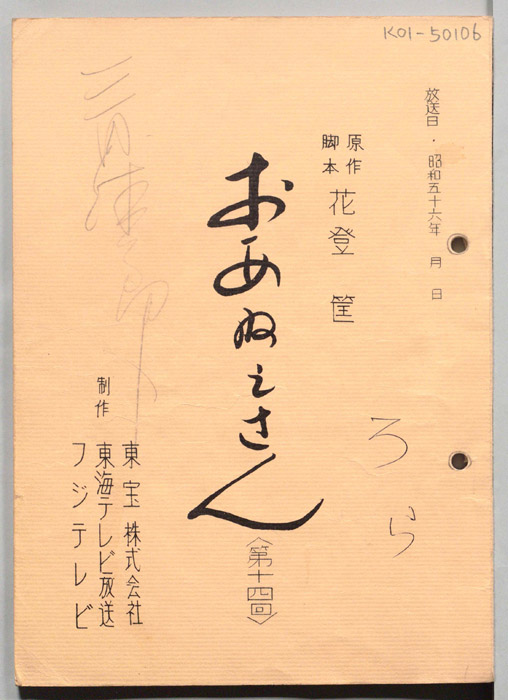 K01-50106
放送日・昭和五十六年 月 日
原作
脚本
花登 筐
おあねえさん
〈第十四回〉
制作
東宝株式会社
東海テレビ放送
フジテレビ